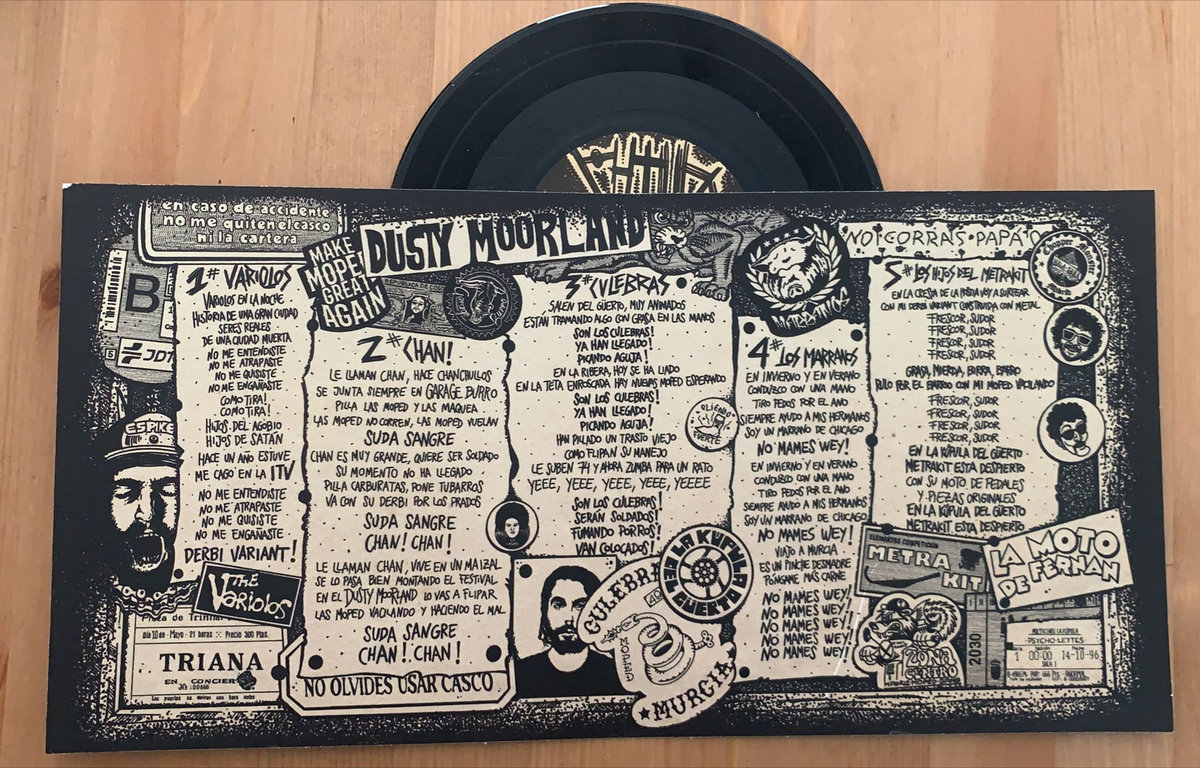 en caso de accidente
no me quiten el casco
ni la cartera
B
JDT
MAKE
MOPED
GREAT
AGAIN
DUSTY MOORLAND
METRAKITOS
NO CORRAS PAPÁ
1# VARIOLOS
VARIOLOS EN LA NOCHE
HISTORIA DE UNA GRAN CIUDAD
SERES REALES
DE UNA CIUDAD MUERTA
NO ME ENTENDISTE
NO ME ATRAPASTE
NO ME QUISISTE
NO ME ENGAÑASTE
COMO TIRA!
COMO TIRA!
HIJOS DEL AGOBIO
HIJOS DE SATÁN
HACE UN AÑO ESTUVE
ME CAGO EN LA ITV
NO ME ENTENDISTE
NO ME ATRAPASTE
NO ME QUISISTE
NO ME ENGAÑASTE
DERBI VARIANT!
THE
VARIOLOS
Día 10 de Mayo - 21 horas Precio 300 Ptas.
TRIANA
EN CONCIERTO
2# CHAN!
LE LLAMAN CHAN, HACE CHANCHULLOS
SE JUNTA SIEMPRE EN GARAGE BURRO
PILLA LAS MOPED Y LAS MAQUEA
LAS MOPED NO CORREN, LAS MOPED VUELAN
SUDA SANGRE
CHAN ES MUY GRANDE, QUIERE SER SOLDADO
SU MOMENTO NO HA LLEGADO
PILLA CARBURATAS, PONE TUBARROS
VA CON SU DERBI POR LOS PRADOS
SUDA SANGRE
CHAN! CHAN!
LE LLAMAN CHAN, VIVE EN UN MAIZAL
SE LO PASA BIEN MONTANDO EL FESTIVAL
EN EL DUSTY MOORLAND LO VAS A FLIPAR
LAS MOPED VACILANDO Y HACIENDO EL MAL
SUDA SANGRE
CHAN! CHAN!
NO OLVIDES USAR CASCO
3# CULEBRAS
SALEN DEL GÜERTO, MUY ANIMADOS
ESTÁN TRAMANDO ALGO CON GRASA EN LAS MANOS
SON LOS CULEBRAS!
YA HAN LLEGADO!
PICANDO AGUJA!
EN LA RIBERA, HOY SE HA LIADO
EN LA TETA ENROSCADA HAY NUEVAS MOPED ESPERANDO
SON LOS CULEBRAS!
YA HAN LLEGADO!
PICANDO AGUJA!
HAN PILLADO UN TRASTO VIEJO
COMO FLIPAN SU MANEJO
LE SUBEN 74 Y AHORA ZUMBA PARA UN RATO
YEEE, YEEE, YEEE, YEEE, YEEEE
SON LOS CULEBRAS!
SERÁN SOLDADOS!
FUMANDO PORROS!
VAN COLOCADOS!
LA KÚPULA
DEL GÜERTO
CULEBRA
MURCIA
4# LOS MARRANOS
EN INVIERNO Y EN VERANO
CONDUZCO CON UNA MANO
TIRO PEDOS POR EL ANO
SIEMPRE AYUDO A MIS HERMANOS
SOY UN MARRANO DE CHICAGO
NO MAMES WEY!
EN INVIERNO Y EN VERANO
CONDUZCO CON UNA MANO
TIRO PEDOS POR EL ANO
SIEMPRE AYUDO A MIS HERMANOS
SOY UN MARRANO DE CHICAGO
NO MAMES WEY!
VIAJO A MURCIA
ES UN PINCHE DESMADRE
PÓNGAME MÁS CARNE
NO MAMES WEY!
NO MAMES WEY!
NO MAMES WEY!
NO MAMES WEY!
NO MAMES WEY!
5# LOS HIJOS DEL METRAKIT
EN LA CRESTA DE LA MIERDA VOY A SURFEAR
CON MI DERBI VARIANT CONSTRUIDA CON METAL
FRESCOR, SUDOR
FRESCOR, SUDOR
FRESCOR, SUDOR
FRESCOR, SUDOR
GRASA, MIERDA, BIRRA, BARRO
RULO POR EL BARRO CON MI MOPED VACILANDO
FRESCOR, SUDOR
FRESCOR, SUDOR
FRESCOR, SUDOR
FRESCOR, SUDOR
EN LA KÚPULA DEL GÜERTO
METRAKIT ESTA DESPIERTO
CON SU MOTO DE PEDALES
Y PIEZAS ORIGINALES
EN LA KÚPULA DEL GÜERTO
METRAKIT ESTA DESPIERTO
ELEMENTOS COMPETICIÓN
METRA
KIT
LA MOTO
DE FERNAN
ZONA
CENTRO
2030
PSYCHO-LETTES
1 00:00 14-10-96